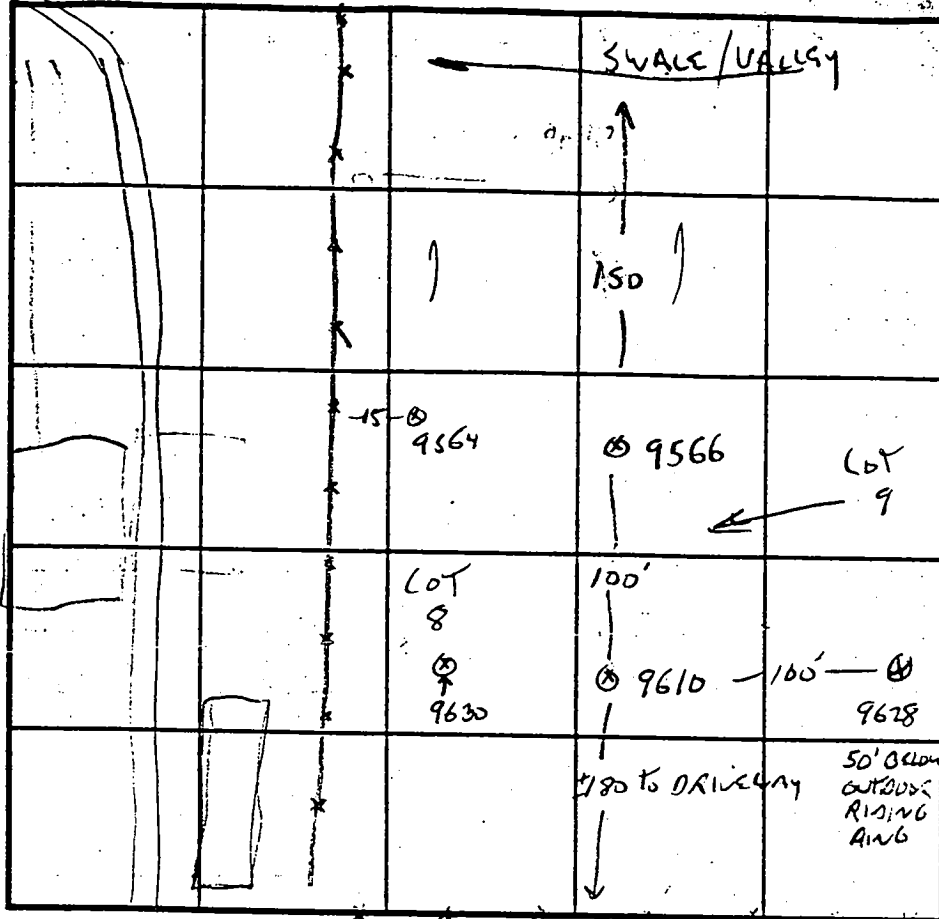 SWALE/VALLEY
150
15
9564
9566
LOT
9
LOT
8
100'
9630
9610
100'
9628
±180 TO DRIVEWAY
50' BELOW
OUTDOOR
RIDING
RING